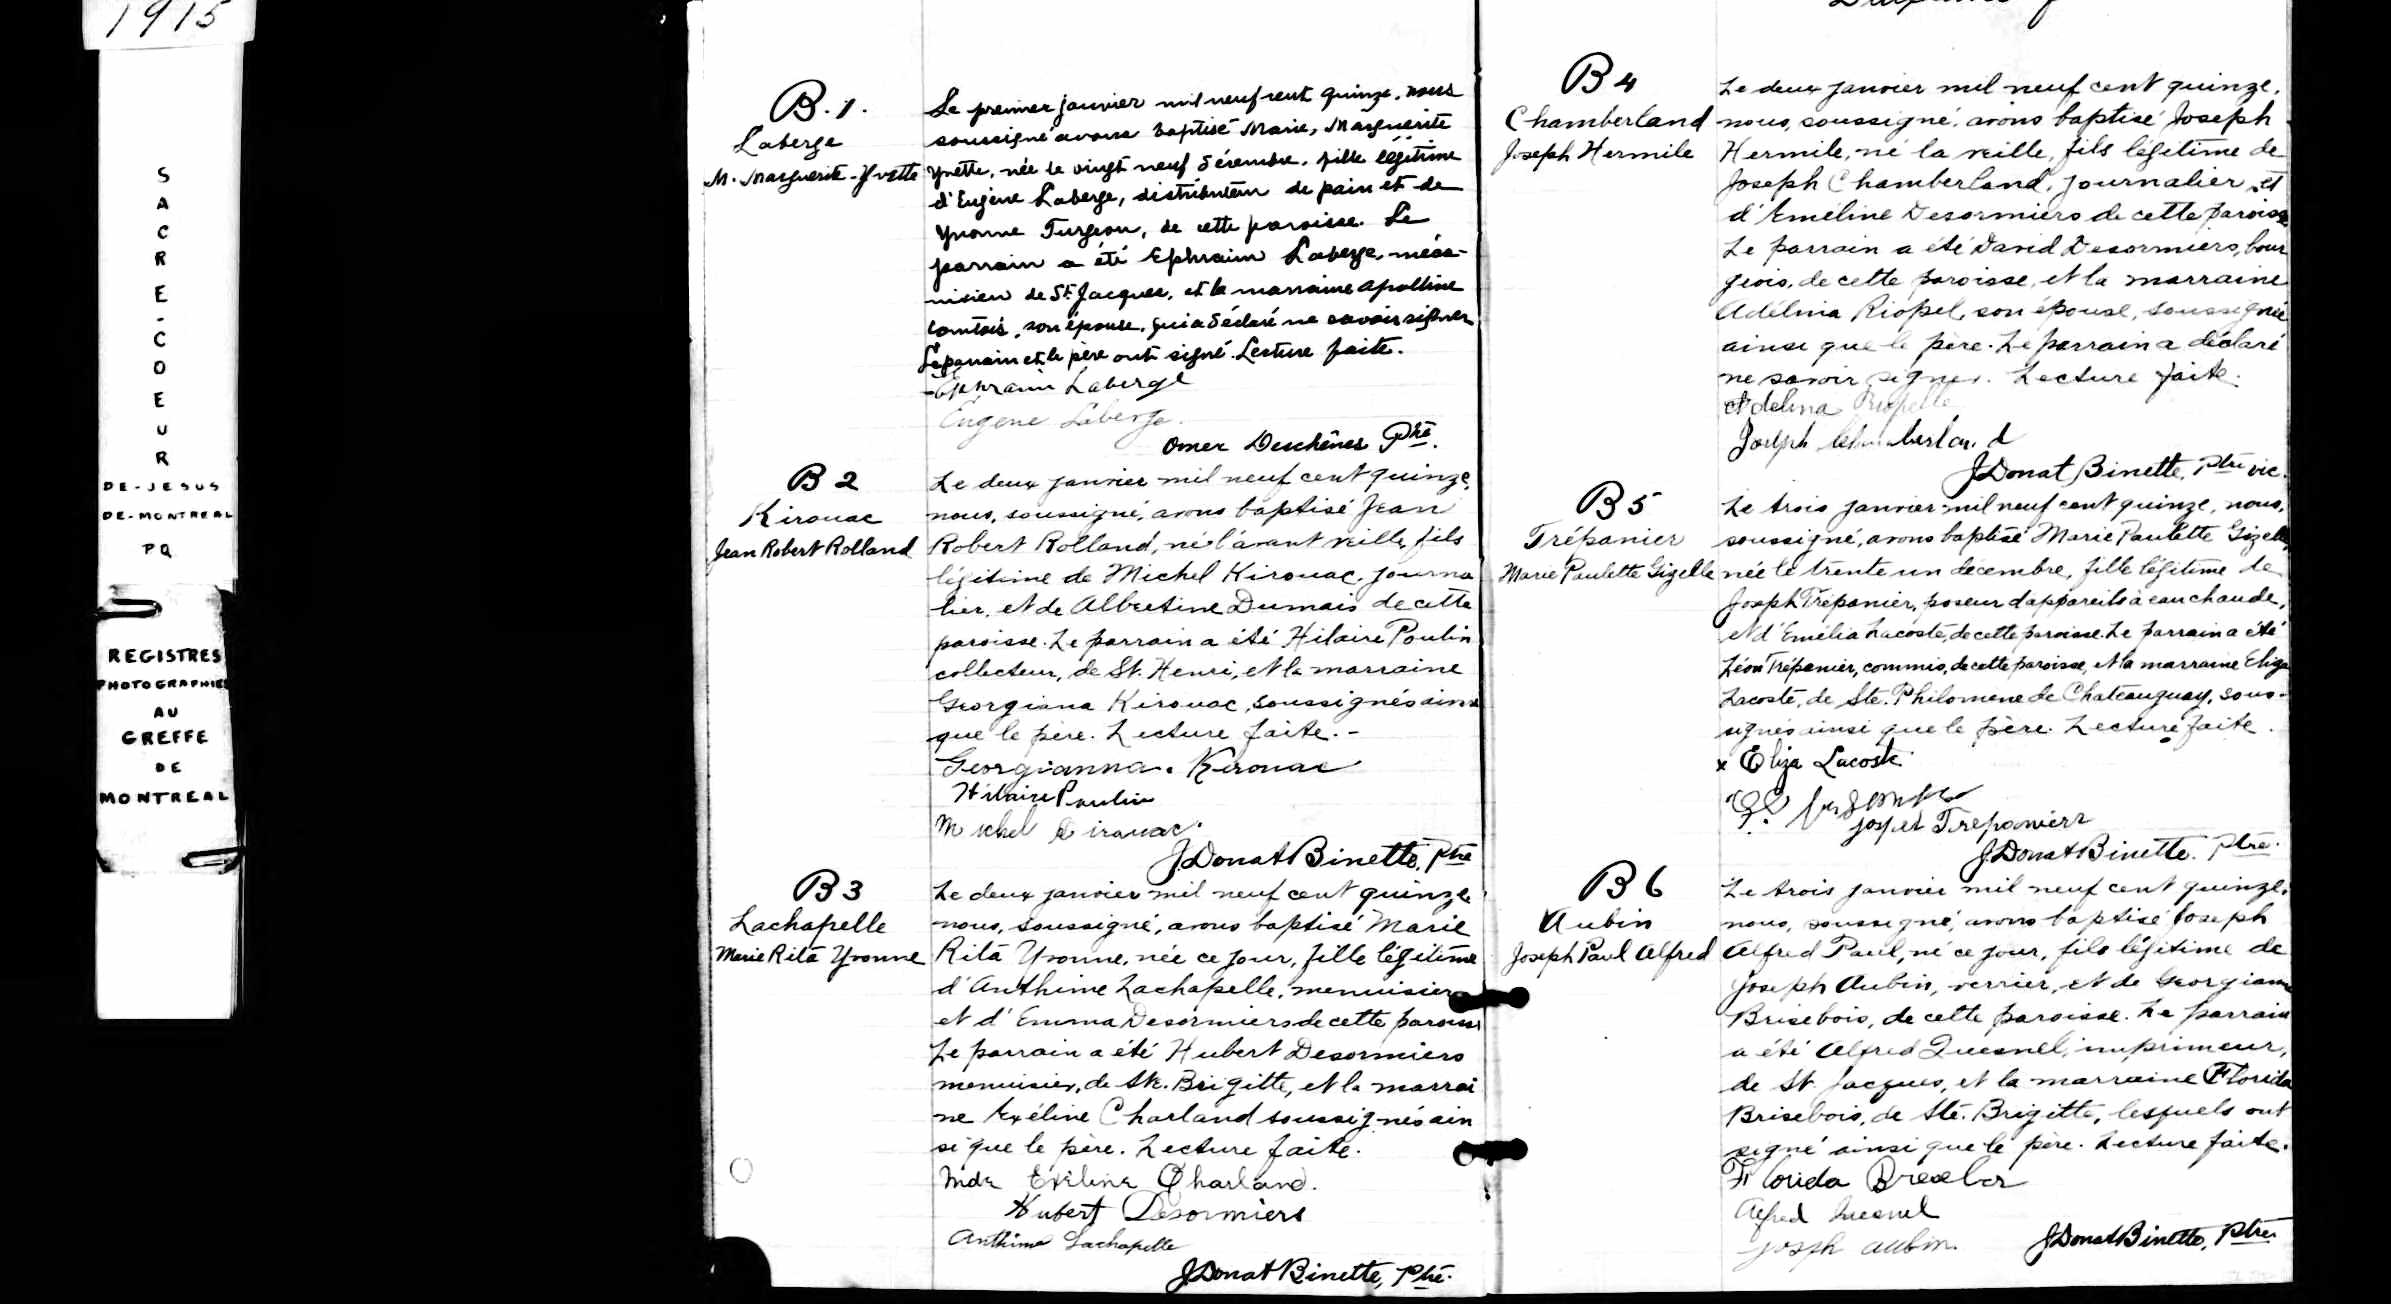 1915
S
A
C
R
E
-
C
O
E
U
R
DE-JESUS
DE-MONTREAL
PQ
REGISTRES
PHOTOGRAPHIES
AU
GREFFE
DE
MONTREAL
B.1.
Laberge
M. Marguerite-Yvette
Le premier janvier mil neuf cent quinze, nous
soussigné avons baptisé Marie, Marguerite
Yvette, née le vingt neuf décembre, fille légitime
d'Eugène Laberge, distributeur de pain et de
Yvonne Turgeon, de cette paroisse. Le
parrain a été Ephraim Laberge, méca-
nicien de St. Jacques, et la marraine Apolline
Comtois, son épouse, qui a déclaré ne savoir signer
Le parrain et le père ont signé. Lecture faite.
Ephraim Laberge
Eugene Laberge.
Omer Deschênes Ptre.
B 2
Kirouac
Jean Robert Rolland
Le deux janvier mil neuf cent quinze,
nous, soussigné, avons baptisé Jean
Robert Rolland, né l'avant veille, fils
légitime de Michel Kirouac, journa
lier, et de Albertine Dumais de cette
paroisse. Le parrain a été Hilaire Poulin
collecteur, de St. Henri, et la marraine
Georgiana Kirouac, soussignés ainsi
que le père. Lecture faite. -
Georgianna. Kirouac
Hilaire Poulin
Michel Kirouac.
J. Donat Binette, Ptre
B 3
Lachapelle
Marie Rita Yvonne
Le deux janvier mil neuf cent quinze,
nous, soussigné, avons baptisé Marie
Rita Yvonne, née ce jour, fille légitime
d'Anthime Lachapelle, menuisier
et d'Emma Desormiers de cette paroisse
Le parrain a été Hubert Desormiers
menuisier, de Ste. Brigitte, et la marrai
ne Exéline Charland soussignés ain
si que le père. Lecture faite.
Mde Exéline Charland.
Hubert Desormiers
Anthime Lachapelle
J. Donat Binette, Ptre.
B 4
Chamberland
Joseph Hermile
Le deux janvier mil neuf cent quinze,
nous, soussigné, avons baptisé Joseph
Hermile, né la veille, fils légitime de
Joseph Chamberland, journalier et
d'Eméline Desormiers de cette paroisse
Le parrain a été David Desormiers, bour
geois, de cette paroisse, et la marraine
Adélina Riopel, son épouse, soussignée
ainsi que le père. Le parrain a déclaré
ne savoir signer. Lecture faite.
Adelina Riopelle
Joseph Chamberland
J. Donat Binette, Ptre vic.
B 5
Trépanier
Marie Paulette Gizelle
Le trois janvier mil neuf cent quinze, nous,
soussigné, avons baptisé Marie Paulette Gizelle,
née le trente un décembre, fille légitime de
Joseph Trépanier, poseur d'appareils à eau chaude,
et d'Emélia Lacoste, de cette paroisse. Le parrain a été
Léon Trépanier, commis, de cette paroisse, et la marraine Eliza
Lacoste, de Ste. Philomene de Chateauguay, sous-
signés ainsi que le père. Lecture faite.
x Eliza Lacoste
Joseph Trepanier
J. Donat Binette. Ptre.
B 6
Aubin
Joseph Paul Alfred
Le trois janvier mil neuf cent quinze,
nous, soussigné, avons baptisé Joseph
Alfred Paul, né ce jour, fils légitime de
Joseph Aubin, verrier, et de Georgiana
Brisebois, de cette paroisse. Le parrain
a été Alfred Quesnel, imprimeur,
de St. Jacques, et la marraine Florida
Brisebois, de Ste. Brigitte, lesquels ont
signé ainsi que le père. Lecture faite.
Florida
Alfred Quesnel
Joseph Aubin.
J. Donat Binette, Ptre.